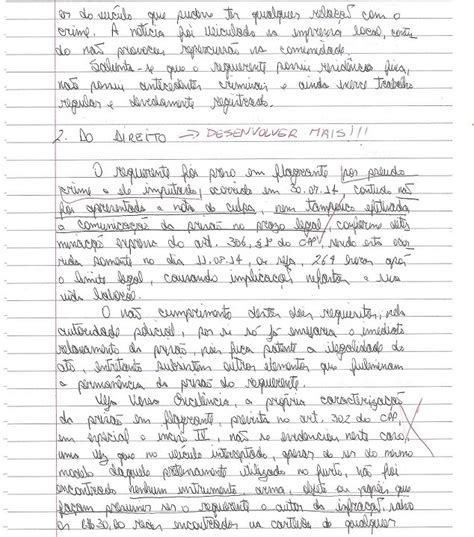 or do veículo que pudesse ter qualquer relação com o
crime. A notícia foi veiculada na imprensa local, contu
do não provocou repercursão na comunidade.
Salienta-se que o requerente possui residência fixa,
não possui antecedentes criminais e ainda exerce trabalho
regular e devidamente registrado.
2. DO DIREITO → DESENVOLVER MAIS!!!
O requerente foi preso em flagrante por pseudo
crime a ele imputado, ocorrido em 30.07.14, contudo não
foi apresentada a nota de culpa, nem tampouco efetivada
a comunicação da prisão no prazo legal, conforme deter
minação expressa do art. 306, §1º do CPP, sendo esta oco
rrida somente no dia 11.08.14, ou seja, 264 horas após
o limite legal, causando implicações a sua
vida laboral.
O não cumprimento destes requisitos, pela
autoridade policial, por si só já ensejaria o imediato
relaxamento da prisão, pois fica patente a ilegalidade do
ato, entretanto subsistem outros elementos que fulminam
a permanência da prisão do requerente.
Veja Vossa Excelência, a própria caracterização
da prisão em flagrante, prevista no art. 302 do CPP,
em especial o inciso IV, não se evidenciou neste caso,
uma vez que no veículo interceptado, apesar de ser do mesmo
modelo daquele pretensamente utilizado no furto, não foi
encontrado nenhum instrumento, arma, objeto ou papéis que
façam presumir ser o requerente o autor da infração, salvo
os R$30,00 reais encontrados na carteira do qualquer